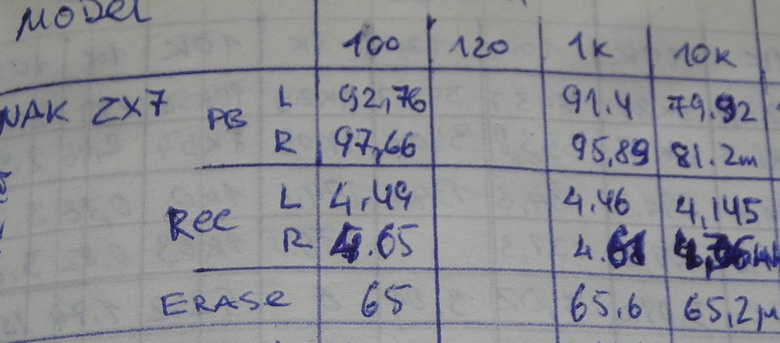 MODEL
100 120 1K 10K
NAK ZX7 PB L 92,76 91.4 79.92
R 97,66 95,89 81.2m
REC L 4,49 4.46 4,145
R 4.65 4.61
ERASE 65 65.6 65,2µ